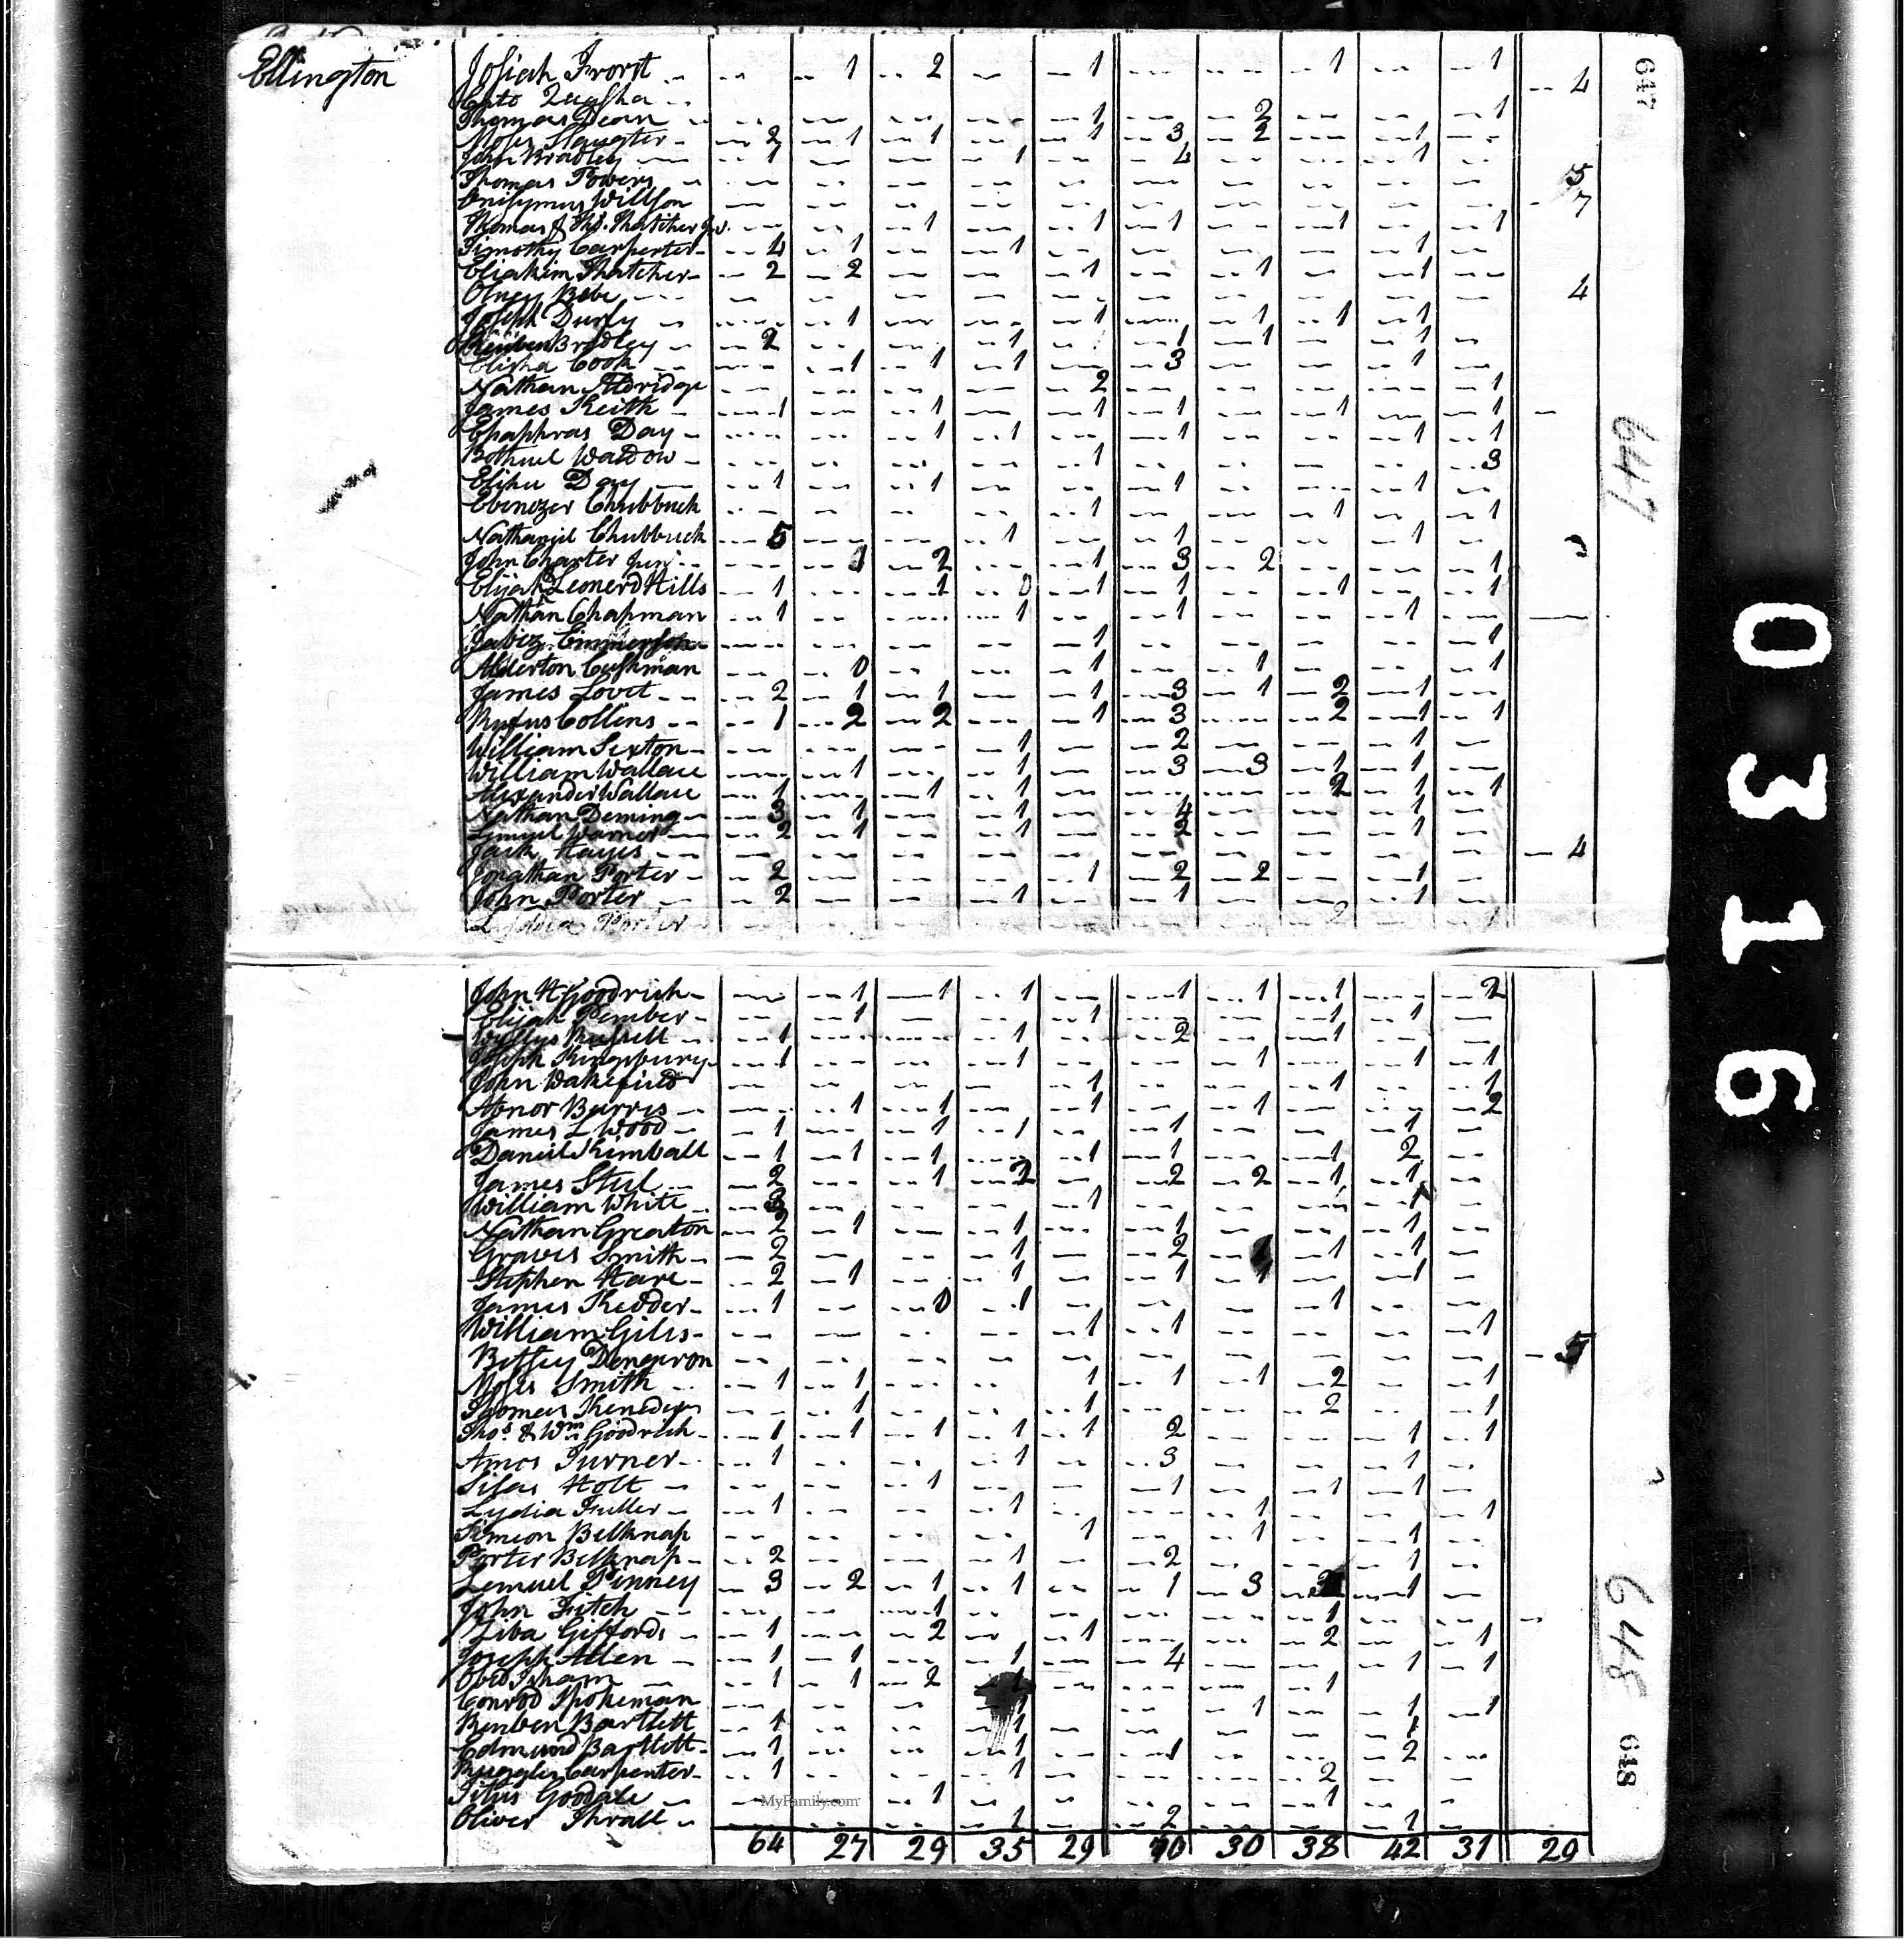 Ellington
647
Josiah Frost 1 2 1 1 1
Cato Quasha 4
Thomas Dean 1 2 1
Moses Slaughter 2 1 1 1 3 2 1
John Bradley 1 1 4 1
Thomas Powers 5
Onisymus Willson 7
Thomas & Ths. Thatcher Jur. 1 1 1 1 1
Timothy Carpenter 4 1 1 1
Eliakim Thatcher 2 2 1 1 1
Olney Bebe 4
Joseph Durfy 1 1 1 1 1
Reuben Bradley 2 1 1 1 1
Elisha Cook 1 1 1 3 1
Nathan Aldridge 2 1
James Keith 1 1 1 1 1 1
Epaphras Day 1 1 1 1 1
Bethuel Waldow 1 3
Elihu Day 1 1 1 1
Ebenezer Chubbuck 1 1 1
Nathaniel Chubbuck 5 1 1 1
John Charter Jun 1 2 1 3 2 1
Elijah Leonerd Hills 1 1 0 1 1 1 1
Nathan Chapman 1 1 1 1
Jabez Emmerson 1 1
Alderton Cushman 0 1 1 1
James Lovet 2 1 1 1 3 1 2 1
Rufus Collins 1 2 2 1 3 2 1 1
William Sexton 1 2 1
William Wallace 1 1 3 3 1 1
Alexander Wallace 1 1 1 2 1 1
Nathan Deming 3 1 1 4 1
Lemuel Warner 2 1 1 2 1
Jack Hayes 4
Jonathan Porter 2 1 2 2 1
John Porter 2 1 1 1
Lydia Porter 2 1
John H Goodrich 1 1 1 1 1 1 2
Elijah Pember 1 1 1 1
Wyllys Russell 1 1 2 1
Joseph Kingsbury 1 1 1 1 1
John Wakefield 1 1 1
Abnor Burris 1 1 1 1 2
James L Wood 1 1 1 1 1
Daniel Kimball 1 1 1 1 1 1 2
James Steel 2 1 2 2 2 1 1
William White 3 1 1
Nathan Greaton 2 1 1 1 1
Graves Smith 2 1 2 1 1 1
Stephen Hare 2 1 1 1 1 1
James Kedder 1 0 1 1
William Giles 1 1 1
Betsey Dengeron 5
Moses Smith 1 1 1 1 1 2 1
Thomas Kenedys 1 1 2 1
Thos. & Wm. Goodrich 1 1 1 1 1 2 1 1
Amos Turner 1 1 3 1
Silas Holt 1 1 1 1
Lydia Fuller 1 1 1 1
Simeon Belknap 1 1 1
Porter Belknap 2 1 2 1
Lemuel Pinney 3 2 1 1 1 3 1
John Fitch 1 1
Ziba Giffords 1 2 1 2 1
Joseph Allen 1 1 1 4 1 1
Obed Isham 1 1 2 1 1
Conrod Spokeman 1 1 1 1
Reuben Bartlett 1 1 1
Edmund Bartlett 1 1 1 2
Ruggles Carpenter 1 1 2
Titus Goodale 1 1
Oliver Thrall 1 2 1
64 27 29 35 29 70 30 38 42 31 29
MyFamily.com
647
0316
648
648